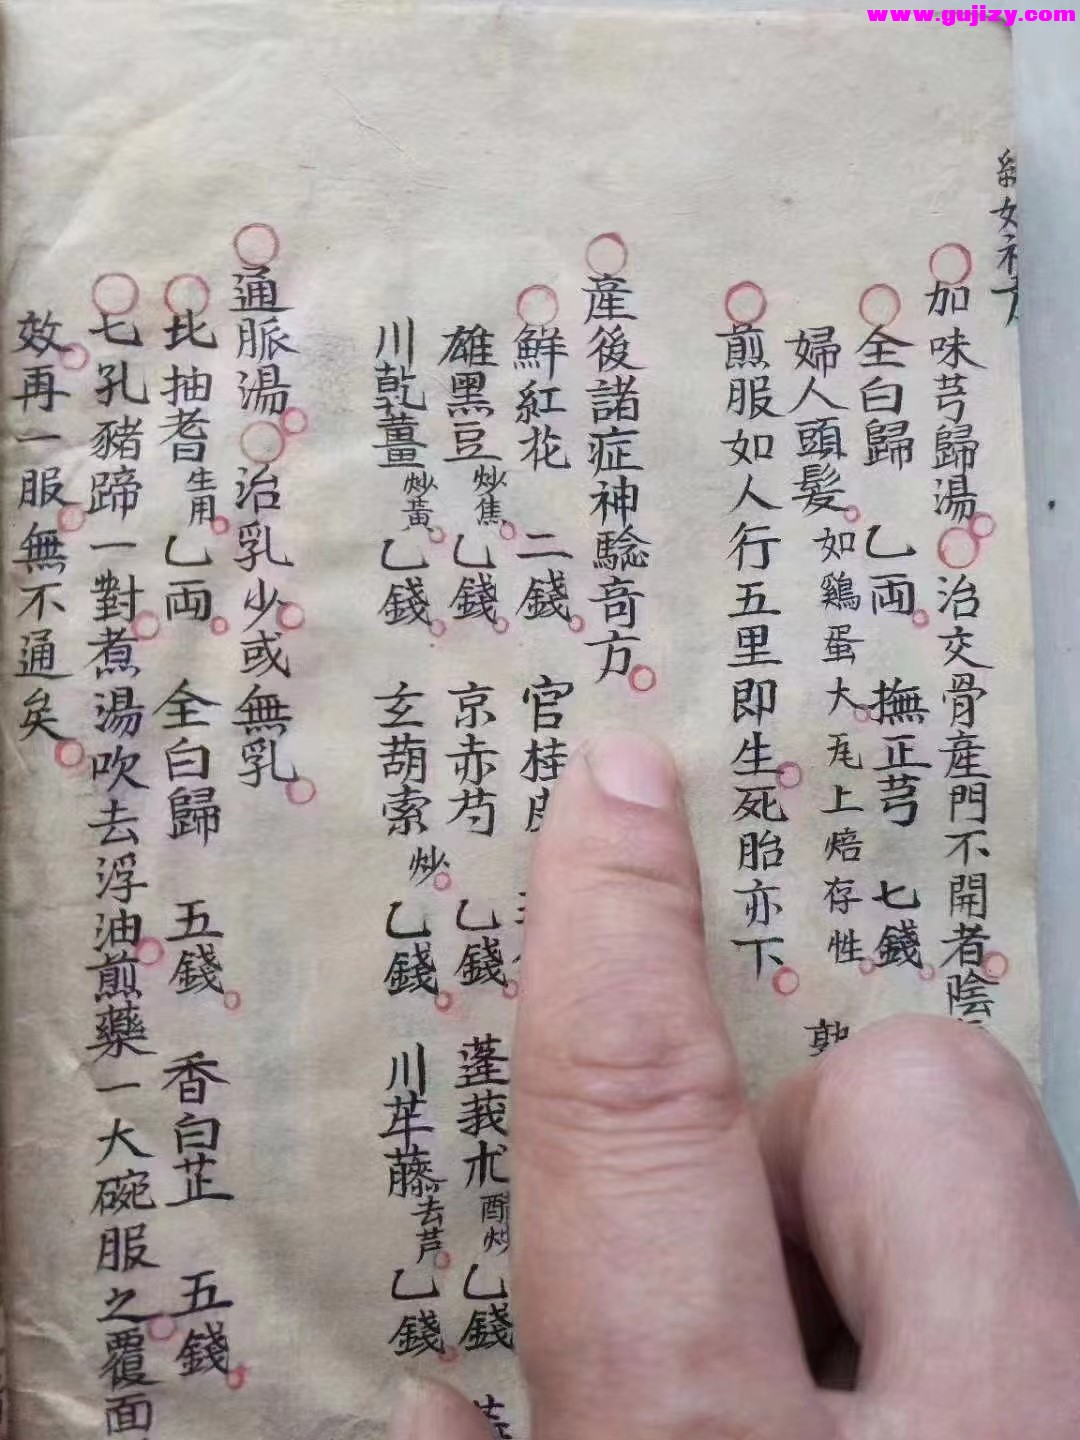 www.gujizy.com
加味芎歸湯治交骨產門不開者陰
全白歸 乙両 撫正芎 七錢
婦人頭髪如鷄蛋大瓦上焙存性
煎服如人行五里即生死胎亦下
產後諸症神騐竒方
鮮紅花 二錢 官桂
雄黑豆炒焦乙錢 京赤芍 乙錢 蓬莪朮酣炒乙錢
川乾薑炒黃乙錢 玄葫索炒乙錢 川牛藤去芦乙錢
通脈湯治乳少或無乳
北抽耆生用乙両 全白歸 五錢 香白芷 五錢
七孔豬蹄一對煮湯吹去浮油煎藥一大碗服之覆面
效再一服無不通矣